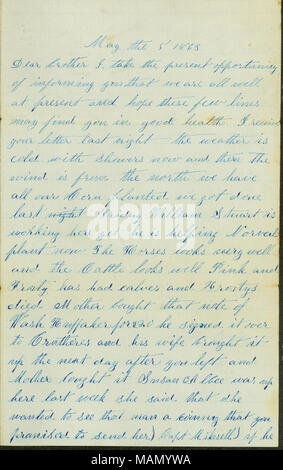 May the 5 1863
Dear brother I take the present opportunity
of informing you that we are all well
at present and hope these few lines
may find you in good health I received
your letter last night the weather is
cold with showers now and then the
wind is from the north we have
all our Corn planted we got done
last night William Stuart is
working here yet he is helping Norval
plant now The Horses looks very well
and the Cattle looks well Pink and
Frosty has had calves and Frostys
died Mother bought that note of
Wash Huffaker he signed it over
to and his wife brought it
up the next day after you left and
Mother bought it Susan was up
here last week she said that she
wanted to see that man a coming that you
promised to send her Capt if he
alamy
Image ID: MAMYWA
www.alamy.com